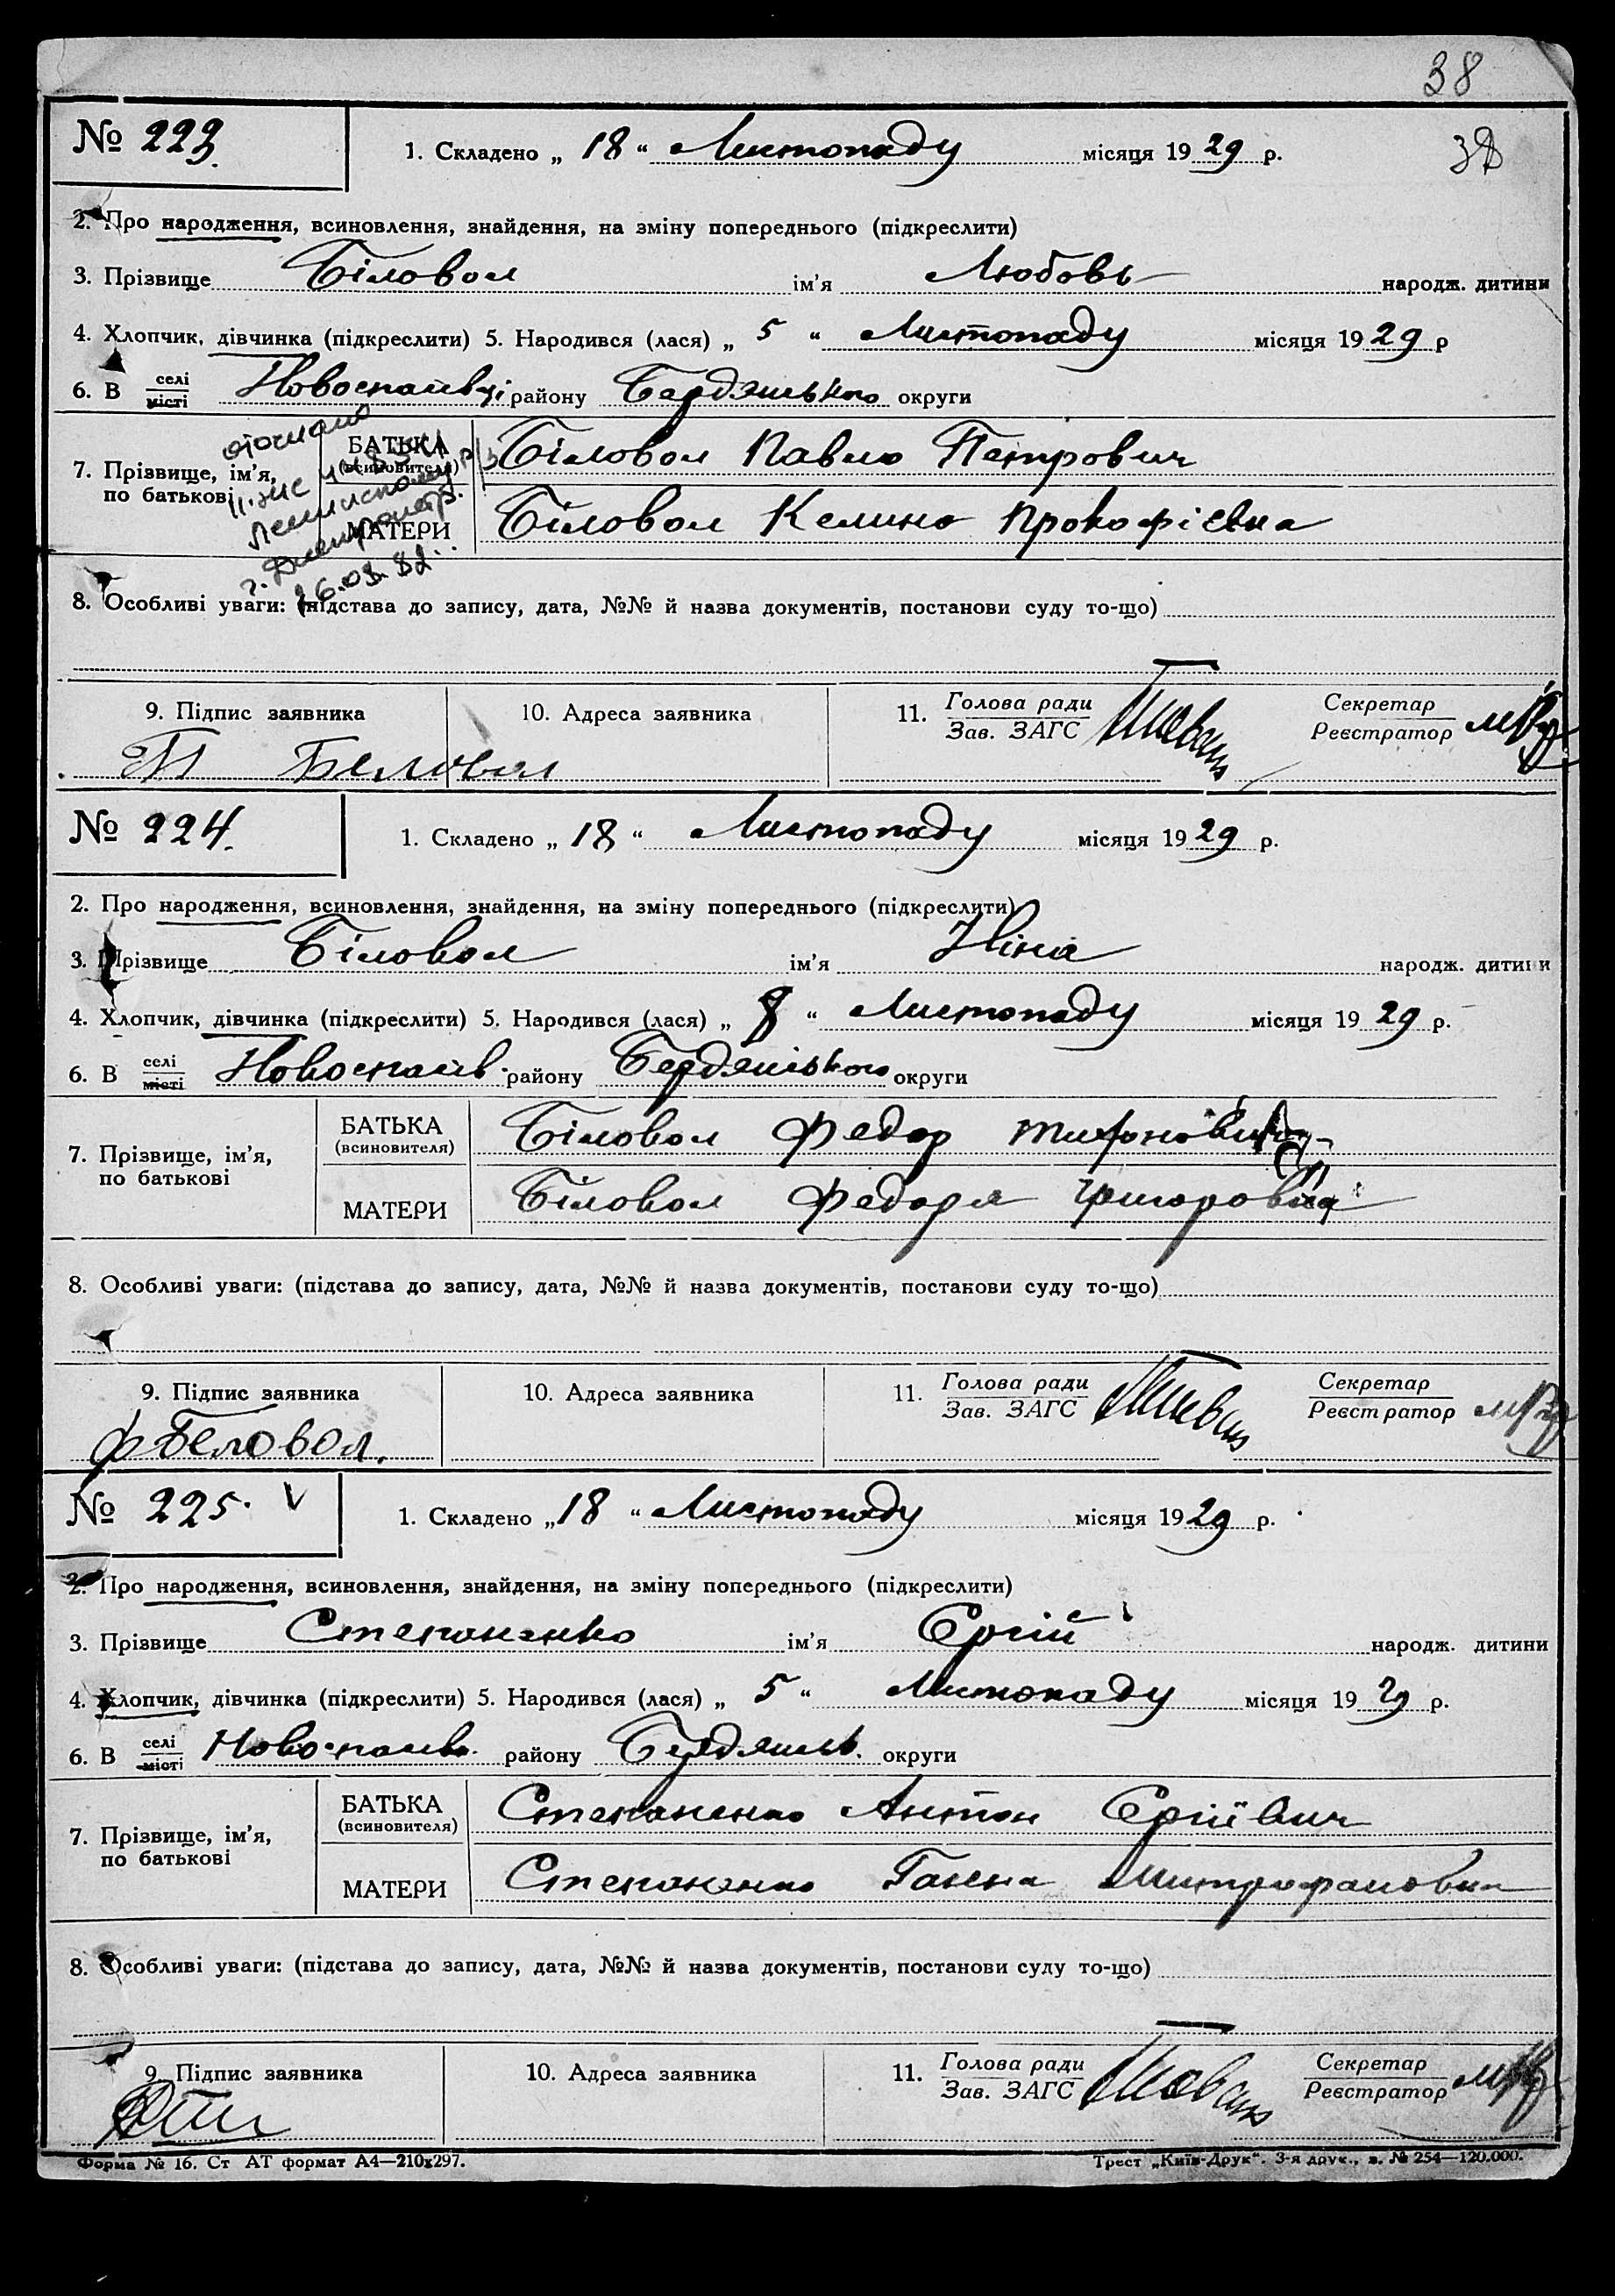 38
№ 223.
1. Складено „ 18 “ Листопаду місяця 1929 р.
38
2. Про народження, всиновлення, знайдення, на зміну попереднього (підкреслити)
3. Прізвище Біловол ім’я Любовь народж. дитини
4. Хлопчик, дівчинка (підкреслити) 5. Народився (лася) „ 5 “ Листопаду місяця 1929 р
6. В селі місті Новоспаівці району Бердянського округи
7. Прізвище, ім’я, по батькові
БАТЬКА (всиновителя) Біловол Павло Петрович
МАТЕРИ Біловол Келина Прокофієвна
г. Днепропетр.
26.03.82.
8. Особливі уваги: (підстава до запису, дата, №№ й назва документів, постанови суду то-що)
9. Підпис заявника
10. Адреса заявника
11. Голова ради Зав. ЗАГС
Секретар Реєстратор
П Беловол
№ 224.
1. Складено „ 18 “ Листопаду місяця 1929 р.
2. Про народження, всиновлення, знайдення, на зміну попереднього (підкреслити)
3. Прізвище Біловол ім’я Ніна народж. дитини
4. Хлопчик, дівчинка (підкреслити) 5. Народився (лася) „ 8 “ Листопаду місяця 1929 р.
6. В селі місті Новоспаів. району Бердянського округи
7. Прізвище, ім’я, по батькові
БАТЬКА (всиновителя) Біловол Федор
МАТЕРИ Біловол Федора Григоровна
8. Особливі уваги: (підстава до запису, дата, №№ й назва документів, постанови суду то-що)
9. Підпис заявника
10. Адреса заявника
11. Голова ради Зав. ЗАГС
Секретар Реєстратор
Ф Беловол.
№ 225. V
1. Складено „ 18 “ Листопаду місяця 1929 р.
2. Про народження, всиновлення, знайдення, на зміну попереднього (підкреслити)
3. Прізвище Степаненко ім’я Сргій народж. дитини
4. Хлопчик, дівчинка (підкреслити) 5. Народився (лася) „ 5 “ Листопаду місяця 1929 р.
6. В селі місті Новоспаів. району Бердянськ. округи
7. Прізвище, ім’я, по батькові
БАТЬКА (всиновителя) Степаненко Антон Сргіївич
МАТЕРИ Степаненко Ганна Митрофановна
8. Особливі уваги: (підстава до запису, дата, №№ й назва документів, постанови суду то-що)
9. Підпис заявника
10. Адреса заявника
11. Голова ради Зав. ЗАГС
Секретар Реєстратор
Форма № 16. Ст АТ формат А4—210x297.
Трест „Київ-Друк“. 3-я друк., з. № 254—120.000.